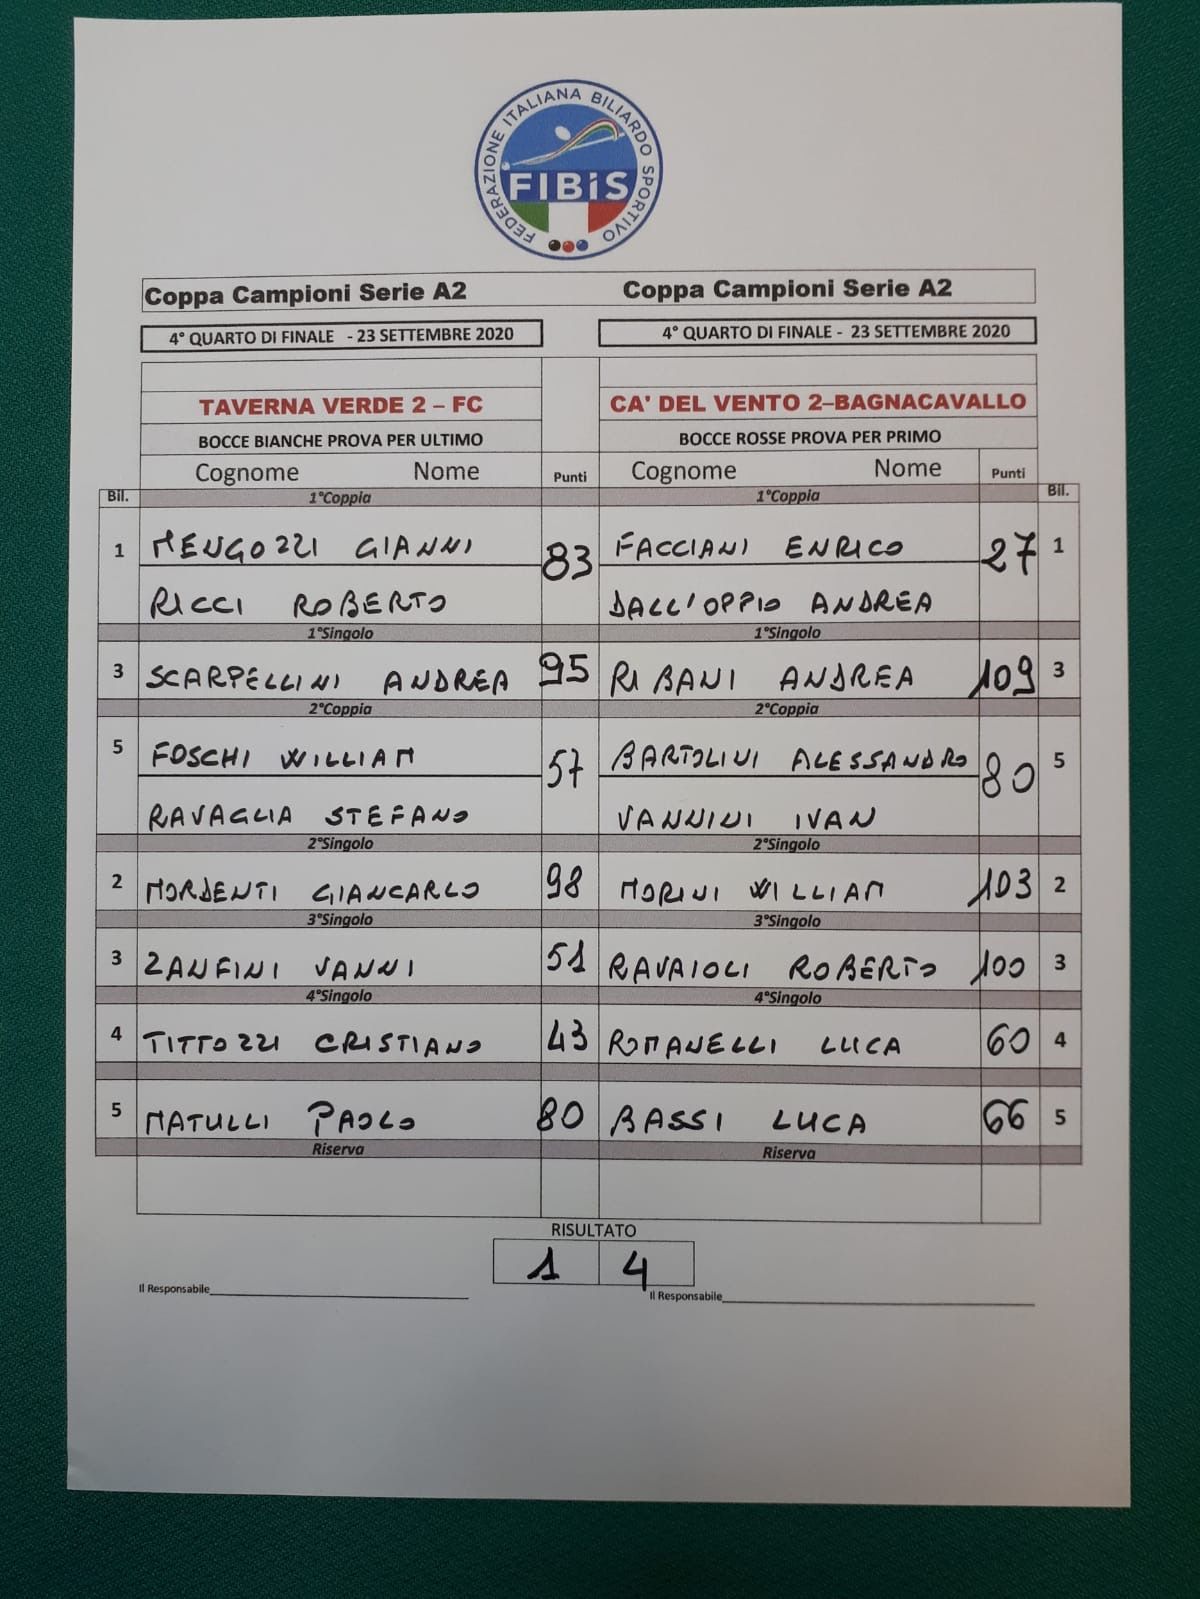 FEDERAZIONE ITALIANA BILIARDO SPORTIVO
FIBiS
Coppa Campioni Serie A2 Coppa Campioni Serie A2
4° QUARTO DI FINALE - 23 SETTEMBRE 2020 4° QUARTO DI FINALE - 23 SETTEMBRE 2020
TAVERNA VERDE 2 – FC CA' DEL VENTO 2–BAGNACAVALLO
BOCCE BIANCHE PROVA PER ULTIMO BOCCE ROSSE PROVA PER PRIMO
Cognome Nome Punti Cognome Nome Punti
Bil. 1°Coppia 1°Coppia Bil.
1 MENGOZZI GIANNI 83 FACCIANI ENRICO 27 1
RICCI ROBERTO DALL'OPPIO ANDREA
1°Singolo 1°Singolo
3 SCARPELLINI ANDREA 95 RIBANI ANDREA 109 3
2°Coppia 2°Coppia
5 FOSCHI WILLIAM 57 BARTOLINI ALESSANDRO 80 5
RAVAGLIA STEFANO VANNINI IVAN
2°Singolo 2°Singolo
2 MORDENTI GIANCARLO 98 MORINI WILLIAM 103 2
3°Singolo 3°Singolo
3 ZANFINI VANNI 51 RAVAIOLI ROBERTO 100 3
4°Singolo 4°Singolo
4 TITTOZZI CRISTIANO 43 ROMANELLI LUCA 60 4
5 MATULLI PAOLO 80 BASSI LUCA 66 5
Riserva Riserva
RISULTATO
1 4
Il Responsabile Il Responsabile